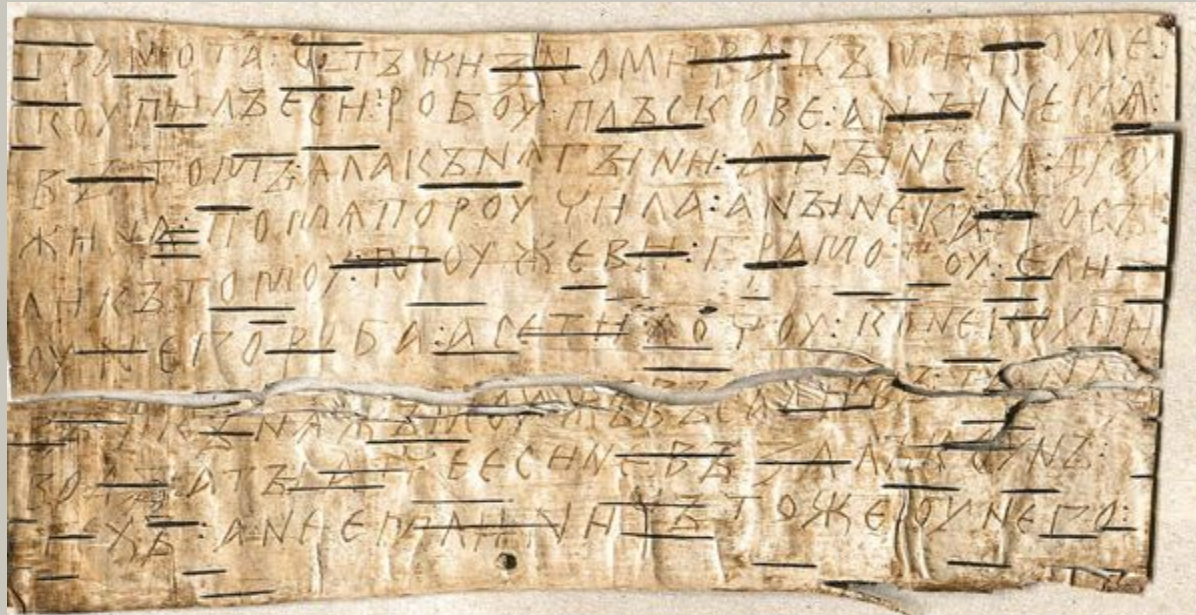 ГРАМОТА : ѠТЪ ЖИЗНОМИРА : КЪ МИКОУЛЕ :
КОУПИЛЪ ЕСИ : РОБОУ : ПЛЪСКОВЕ : А НЪІНЕ МѦ :
ВЪ ТОМЪ : АЛА КЪНѦГЪІНИ : А НЪІНЕ СѦ ДРОУ
ЖИНА : ПО МѦ ПОРОУЧИЛА : А НЪІНЕ КА : ПОСЪ
ЛИ КЪ ТОМОУ : МОУЖЕВИ : ГРАМОТОУ : ЕЛИ
ОУ НЕГО РОБА : А СЕ ТИ ХОЧОУ : КОНЕ КОУПИ
ВЪ : И КЪНѦЖЪ МОУЖЪ ВЪСАДИВЪ : ТА НА СЪ
ВОДЪІ : А ТЪІ АТЧЕ ЕСИ НЕ ВЪЗАЛЪ КОУНЪ :
ТЕХЪ : А НЕ ЕМЛИ : НИЧЪТО ЖЕ ОУ НЕГО :